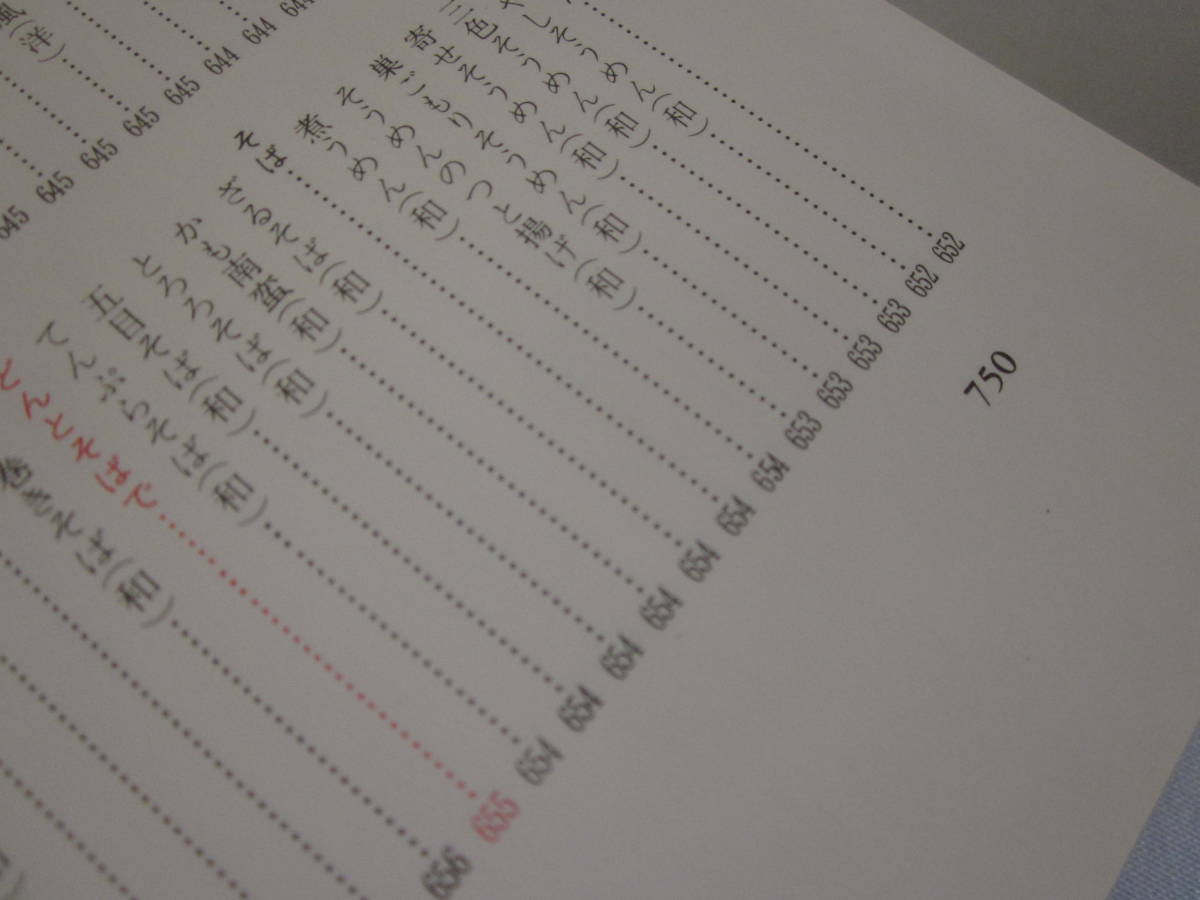 652
やしそうめん(和)……652
三色そうめん(和)……653
寄せそうめん(和)……653
巣ごもりそうめん(和)……653
そうめんのつと揚げ(和)……653
煮うめん(和)……654
そば……654
ざるそば(和)……654
かも南蛮(和)……654
とろろそば(和)……654
五目そば(和)……654
てんぷらそば(和)……654
とんとそばで……655
巻きそば(和)……656
644
644
645
645
645
風(洋)……645
645
750